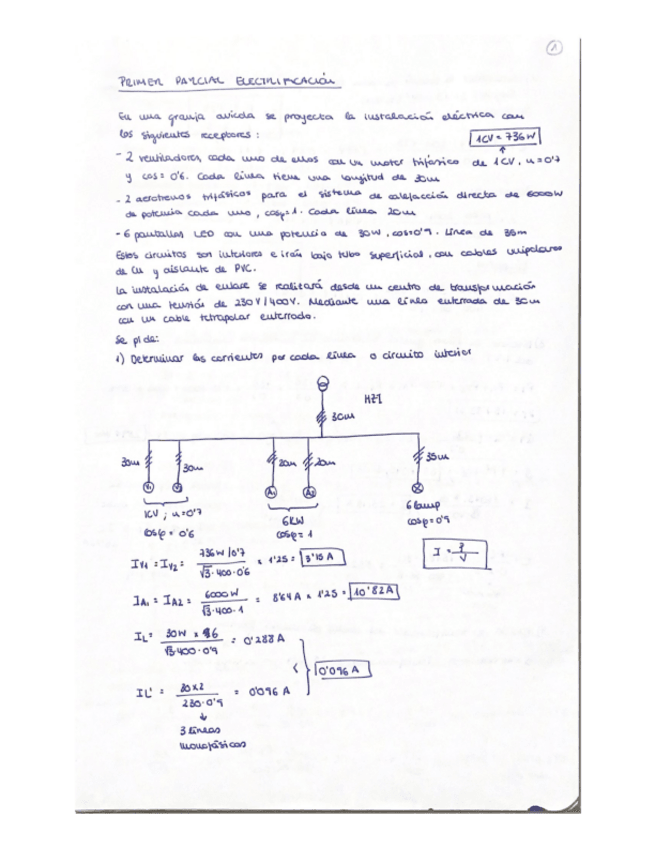 1
PRIMER PARCIAL ELECTRIFICACIÓN
En una granja avícola se proyecta la instalación eléctrica con
los siguientes receptores:
1CV = 736W
- 2 ventiladores, cada uno de ellos con un motor trifásico de 1CV, u=0'7
y cos = 0'6. Cada línea tiene una longitud de 30m
- 2 aerotermos trifásicos para el sistema de calefacción directa de 6000W
de potencia cada uno, cosφ=1. Cada línea 20m
- 6 pantallas LED con una potencia de 30W, cos=0'9. Línea de 35m
Estos circuitos son interiores e irán bajo tubo superficial, con cables unipolares
de Cu y aislante de PVC.
La instalación de enlace se realizará desde un centro de transformación
con una tensión de 230V/400V. Mediante una línea enterrada de 30m
con un cable tetrapolar enterrado.
Se pide:
1) Determinar las corrientes por cada línea o circuito interior
30m
30m 30m 20m 20m 35m
V1 V2 A1 A2
1CV ; u=0'7
cosφ = 0'6
6KW
cosφ = 1
6 lamp
cosφ=0'9
IV1 = IV2 = 736W/0'7 / √3·400·0'6 x 1'25 = 3'16 A
I = P / V
IA1 = IA2 = 6000W / √3·400·1 = 8'64 A x 1'25 = 10'82A
IL = 30W x 6 / √3·400·0'9 = 0'288 A
0'096 A
IL' = 30x2 / 230·0'9 = 0'096 A
3 líneas
monofásicas